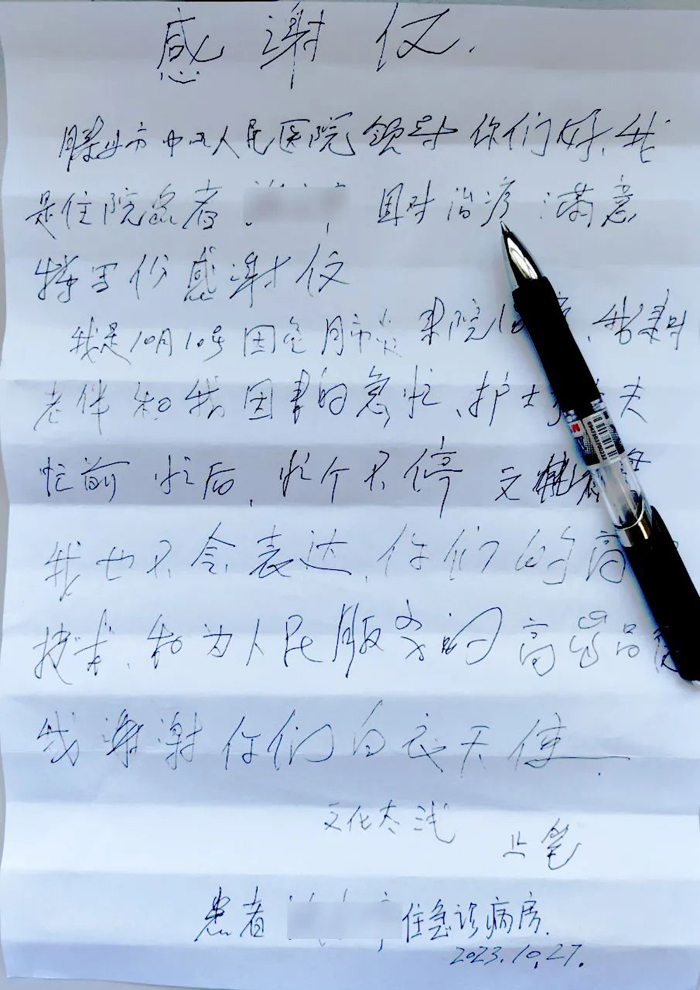 感谢仪.
滕州市中心人民医院领导你们好,我
是住院患者 因对治疗满意
特写份感谢仪
我是10月10号因急肺炎来院治疗,我
老伴和我因害的急忙、护士大夫
忙前忙后,忙个不停 文
我也不会表达,你们的高
技术,和为人民服务的高尚品德
我谢谢你们白衣天使
文化太浅 止笔
患者 住急诊病房.
2023.10.27.